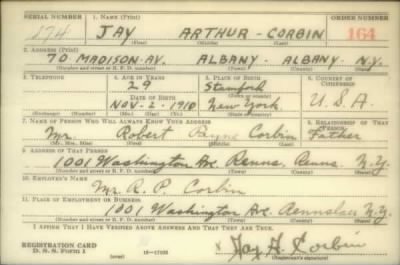 SERIAL NUMBER 1. NAME (Print) ORDER NUMBER
174 JAY ARTHUR - CORBIN 164
(First) (Middle) (Last)
2. ADDRESS (Print)
70 MADISON-AV. ALBANY - ALBANY - N.Y.
(Number and street or R. F. D. number) (Town) (County) (State)
3. TELEPHONE 4. AGE IN YEARS 5. PLACE OF BIRTH 6. COUNTRY OF CITIZENSHIP
29 Stamford
DATE OF BIRTH
NOV- 2 - 1910 New York U.S.A.
(Exchange) (Number) (Mo.) (Day) (Yr.) (State or country)
7. NAME OF PERSON WHO WILL ALWAYS KNOW YOUR ADDRESS 8. RELATIONSHIP OF THAT PERSON
Mr. Robert Payne Corbin Father
(Mr., Mrs., Miss) (First) (Middle) (Last)
9. ADDRESS OF THAT PERSON
1001 Washington Ave. Renns, Renns. N.Y.
(Number and street or R. F. D. number) (Town) (County) (State)
10. EMPLOYER'S NAME
Mr. R. P. Corbin
11. PLACE OF EMPLOYMENT OR BUSINESS
1001 Washington Ave. N.Y.
(Number and street or R. F. D. number) (Town) (County) (State)
I AFFIRM THAT I HAVE VERIFIED ABOVE ANSWERS AND THAT THEY ARE TRUE.
REGISTRATION CARD
D. S. S. Form 1 (over) Jay A. Corbin
(Registrant's signature)